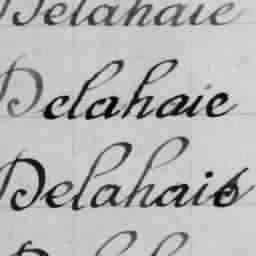 Delahaie
Delahaie
Delahais